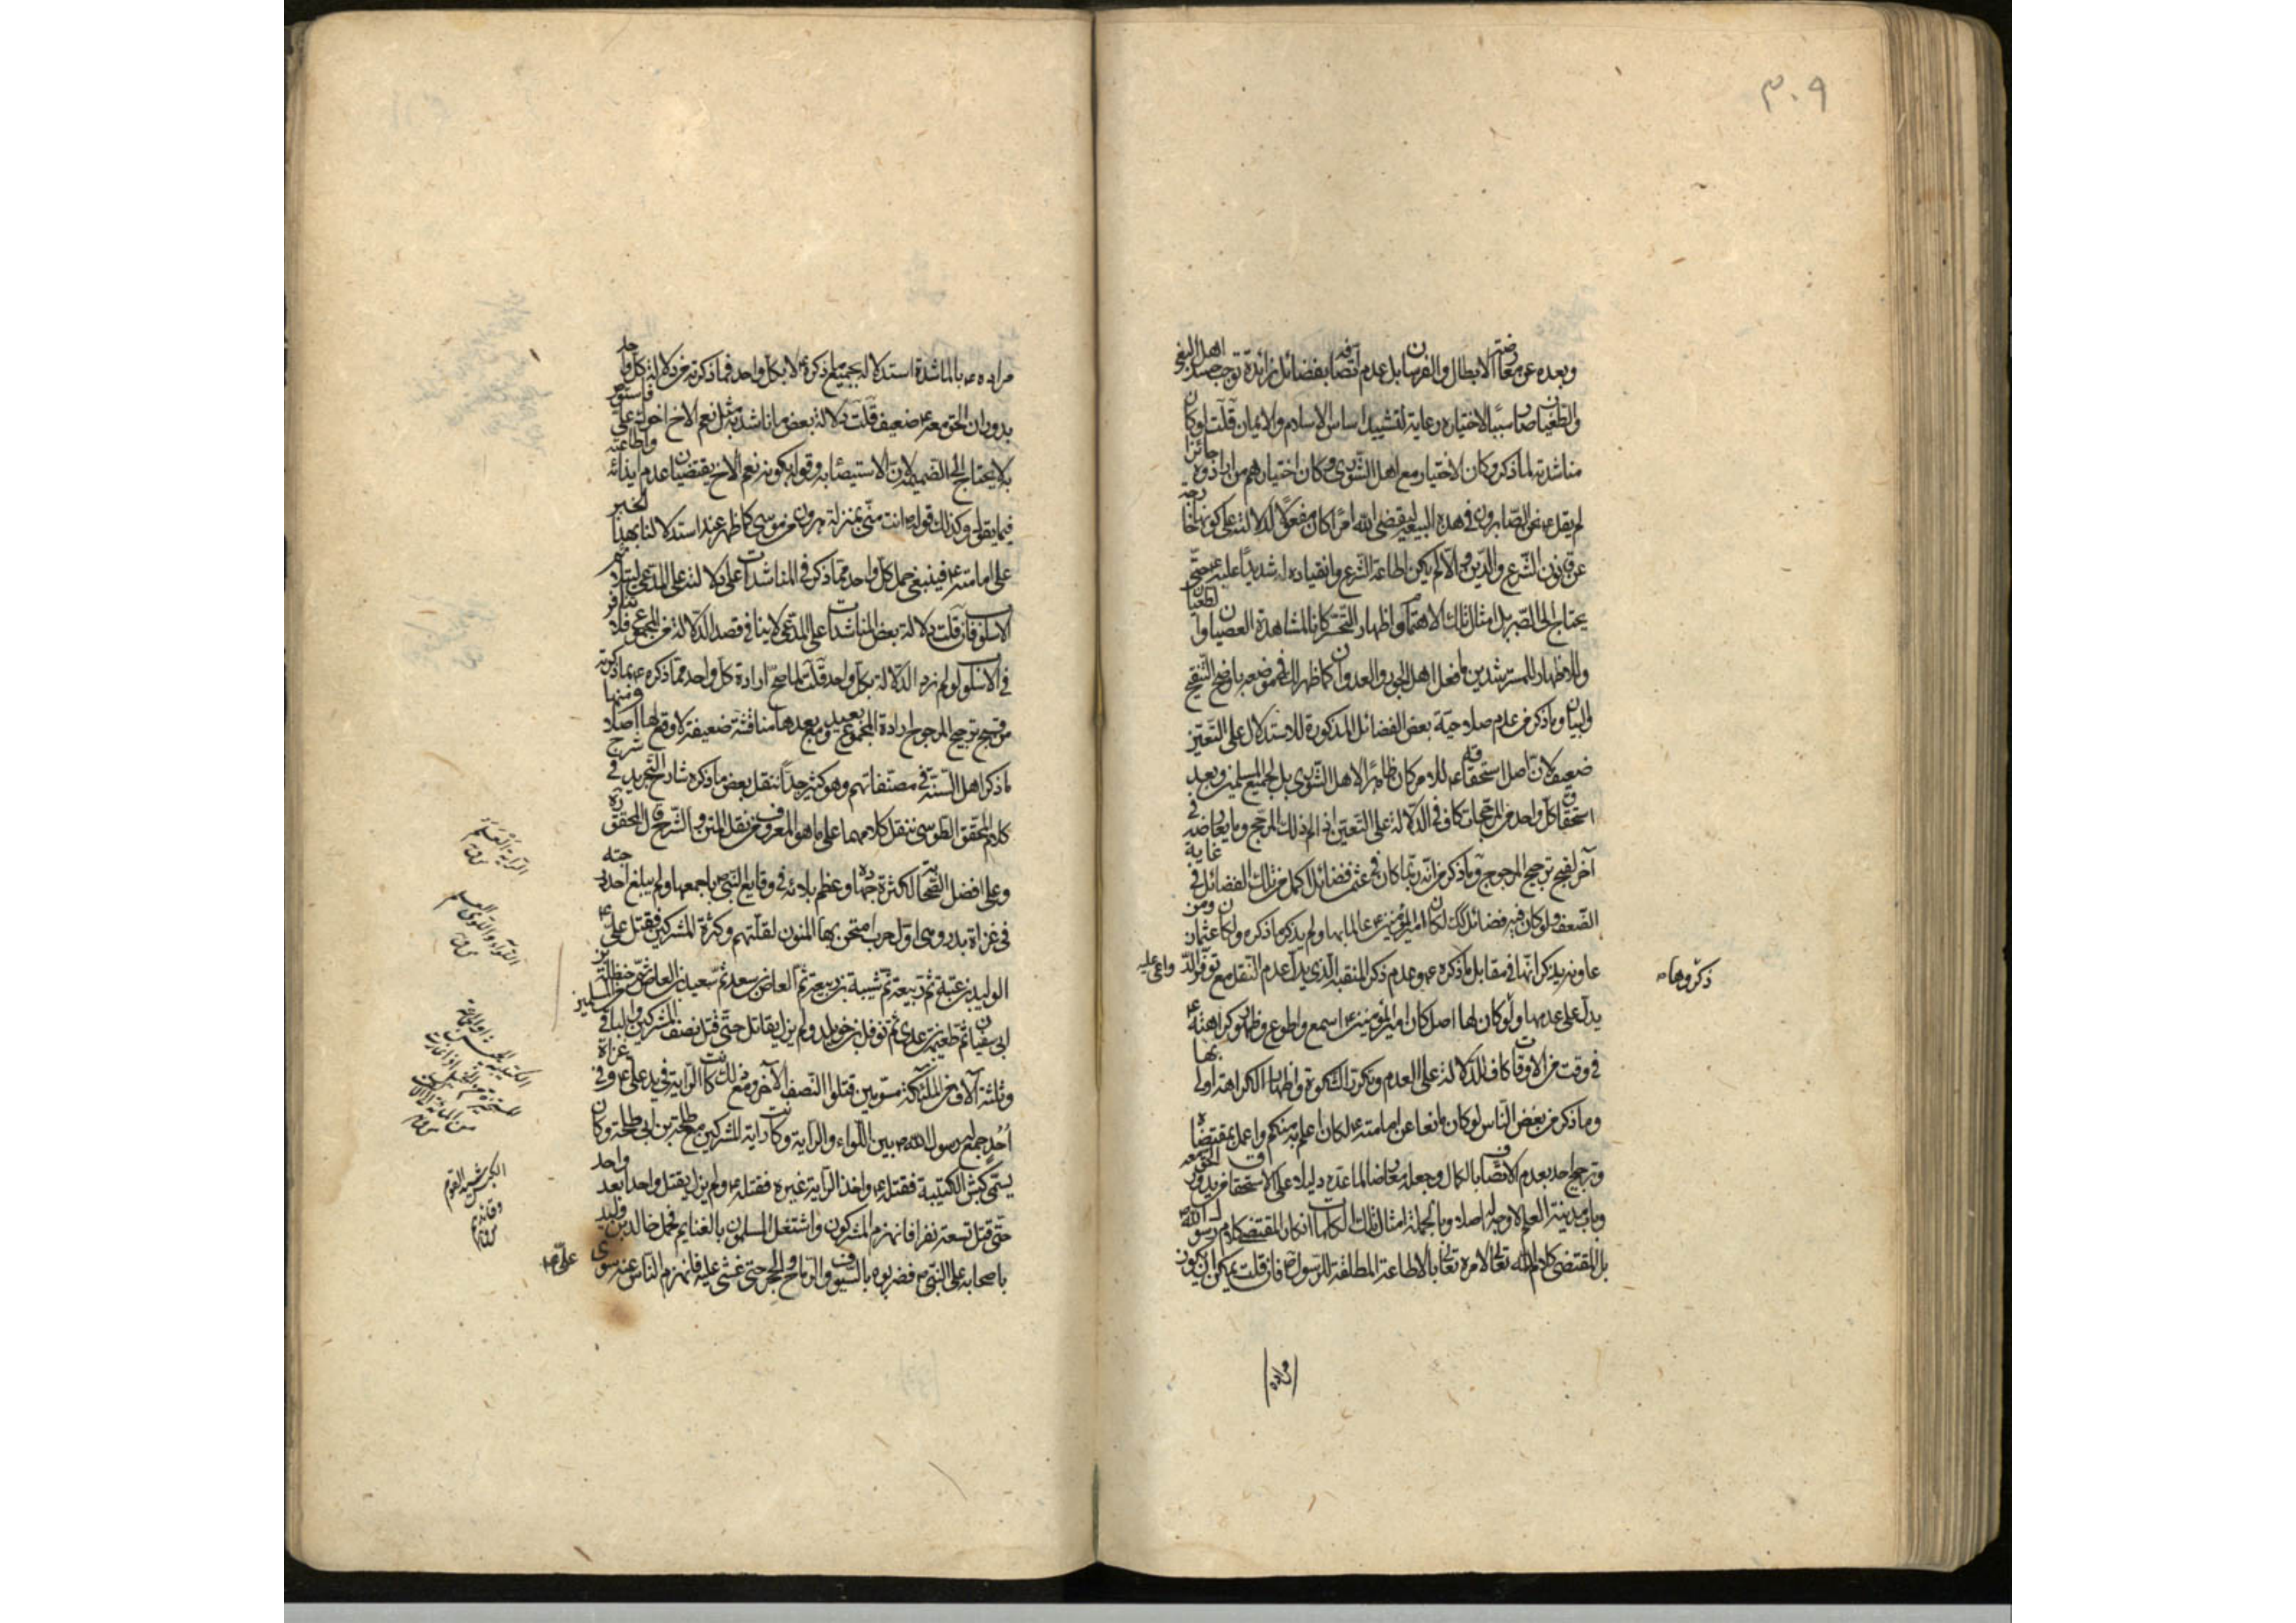 ٣٠٩
وبعده عن معارضته الابطال والفرسان بل عدم اتصافه بفضائل زائدة توجب حسد اهل البغي
والطغيان صار سببا لاختياره رعاية لتشييد اساس الاسلام والايمان قلت لو كان
مناشدته لما ذكر وكان الاختيار مع اهل الشورى وكان اختيارهم من ارادوه جائزا
لم يقل ع نحن الصابرون في هذه البيعة ليقضي الله امرا كان مفعولا لدلالته على كونها خارجة
عن قانون الشرع والدين والا لم يكن اطاعة الشرع وانقياده له شديدا عليه ع حتى
يحتاج الى الصبر بل امثال تلك الاهتمام واظهار التحسر كانا لمشاهدة العصيان والطغيان
والاظهار للمسترشدين ما فعل اهل الجور والعدوان كما ظهر لك في موضعه باوضح التنقيح
والبيان وما ذكر من عدم صلاحية بعض الفضائل المذكورة للاستدلال على التعيين
ضعيف لان اصل استحقاقه ع للامر كان ظاهرا لاهل الشورى بل لجميع المسلمين وبعد
استحقاق كل واحد من المرجحات كاف في الدلالة على التعيين اذا لم لذلك المرجح وما يعارضه في
آخر لقبح ترجيح المرجوح وما ذكر من انه ربما كان في عثمن فضائل اكمل من تلك الفضائل في غاية
الضعف ولو كان فيه فضائل كك لكان امير المؤمنين ع عالما بها ولم يذكر ما ذكره ولكان عثمان ومن
عاونه يذكرانها في مقابل ما ذكره ع وعدم ذكر المنقبة الذي يدل عدم النقل مع توفر الدواعي عليه
ذكروها
يدل على عدمها ولو كان لها اصل كان امير المؤمنين ع اسمع واطوع وظهور كراهته ع
في وقت من الاوقات كاف للدلالة على العدم وتكرر تلك الدعوة واظهار الكراهة اولى بها
وما ذكر من بعض الناس لو كان مانعا عن امامته ع لكان اعلم به منكم واعمل بمقتضاه
وترجيح احد بعدم الاتصاف بالكمال وجعله معارضا لما عده دليلا على الاستحقاق من يدور الحق معه
وباب مدينة العلم لا وجه له اصلا وبالجملة امثال تلك الكلمات انكار لمقتضى كلام رسول الله ص
بل لمقتضى كلام الله تعالى لامره تعالى بالاطاعة المطلقة للرسول ص فان قلت يمكن ان يكون
مراده
مراده ع بالمناشدة استدلاله بجميع ما ذكره لا بكل واحد فما ذكرته من دلالة كل واحد
بدوران الحق معه ع ضعيف قلت دلالة بعض ما ناشد به مثل نعم الاخ اخوك علي فاستوص
به لا يحتاج الى الضميمة لان الاستيصاء به وقوله بكونه نعم الاخ يقتضيان عدم ايذائه واطاعته
فيما يقول وكذلك قوله ص انت مني بمنزلة هرون من موسى كما ظهر عند استدلالنا بهذا الخبر
على امامته ع فينبغي حمل كل واحد مما ذكر في المناشدات على دلالته على المدعى
الاسلوب فان قلت دلالة بعض المناشدات على المدعى لا ينافي قصد الدلالة من المجموع فلا تنافر
في الاسلوب لو لم نرد الدلالة بكل واحد قلت لما صح ارادة كل واحد مما ذكره ع بما ذكرته
من قبح ترجيح المرجوح ارادة المجموع بعيد ومع بعدها مناقشة ضعيفة لا وقع لها اصلا ومنها
ما ذكر اهل السنة في مصنفاتهم وهو كثير جدا ننقل بعض ما ذكره شارح التجريد في شرح
كلام المحقق الطوسي ننقل كلامهما على ما هو المعروف من نقل المتن والشرح قال المحقق ره
وعلي افضل الصحابة لكثرة جهاده وعظم بلائه في وقايع النبي ص باجمعها ولم يبلغ احد درجته
في غزاة بدر وهي اول حرب امتحن بها المؤمنون لقلتهم وكثرة المشركين فقتل علي ع
الوليد بن عتبة ثم ربيعة ثم شيبة بن ربيعة ثم العاص بن سعد ثم سعيد بن العاص ثم حنظلة بن
ابي سفيان ثم طعيمة بن عدي ثم نوفل بن خويلد ولم يزل يقاتل حتى قتل نصف المشركين والباقي من المسلمين
وثلثة آلاف من الملئكة مسومين قتلوا النصف الآخر ومع ذلك كانت الراية في يد علي ع وفي غزاة
احد جمع له رسول الله ص بين اللواء والراية وكانت راية المشركين مع طلحة بن ابي طلحة وكان
يسمى كبش الكتيبة فقتله ع واخذ الراية غيره فقتله ع ولم يزل يقتل واحدا بعد واحد
حتى قتل تسعة نفر فانهزم المشركون واشتغل المسلمون بالغنايم فحمل خالد بن وليد
باصحابه على النبي ص فضربوه بالسيوف والرماح والحجر حتى غشي عليه فانهزم الناس عنه سوى علي ع
الراية العلم
الكبش سيد القوم
وقائدهم